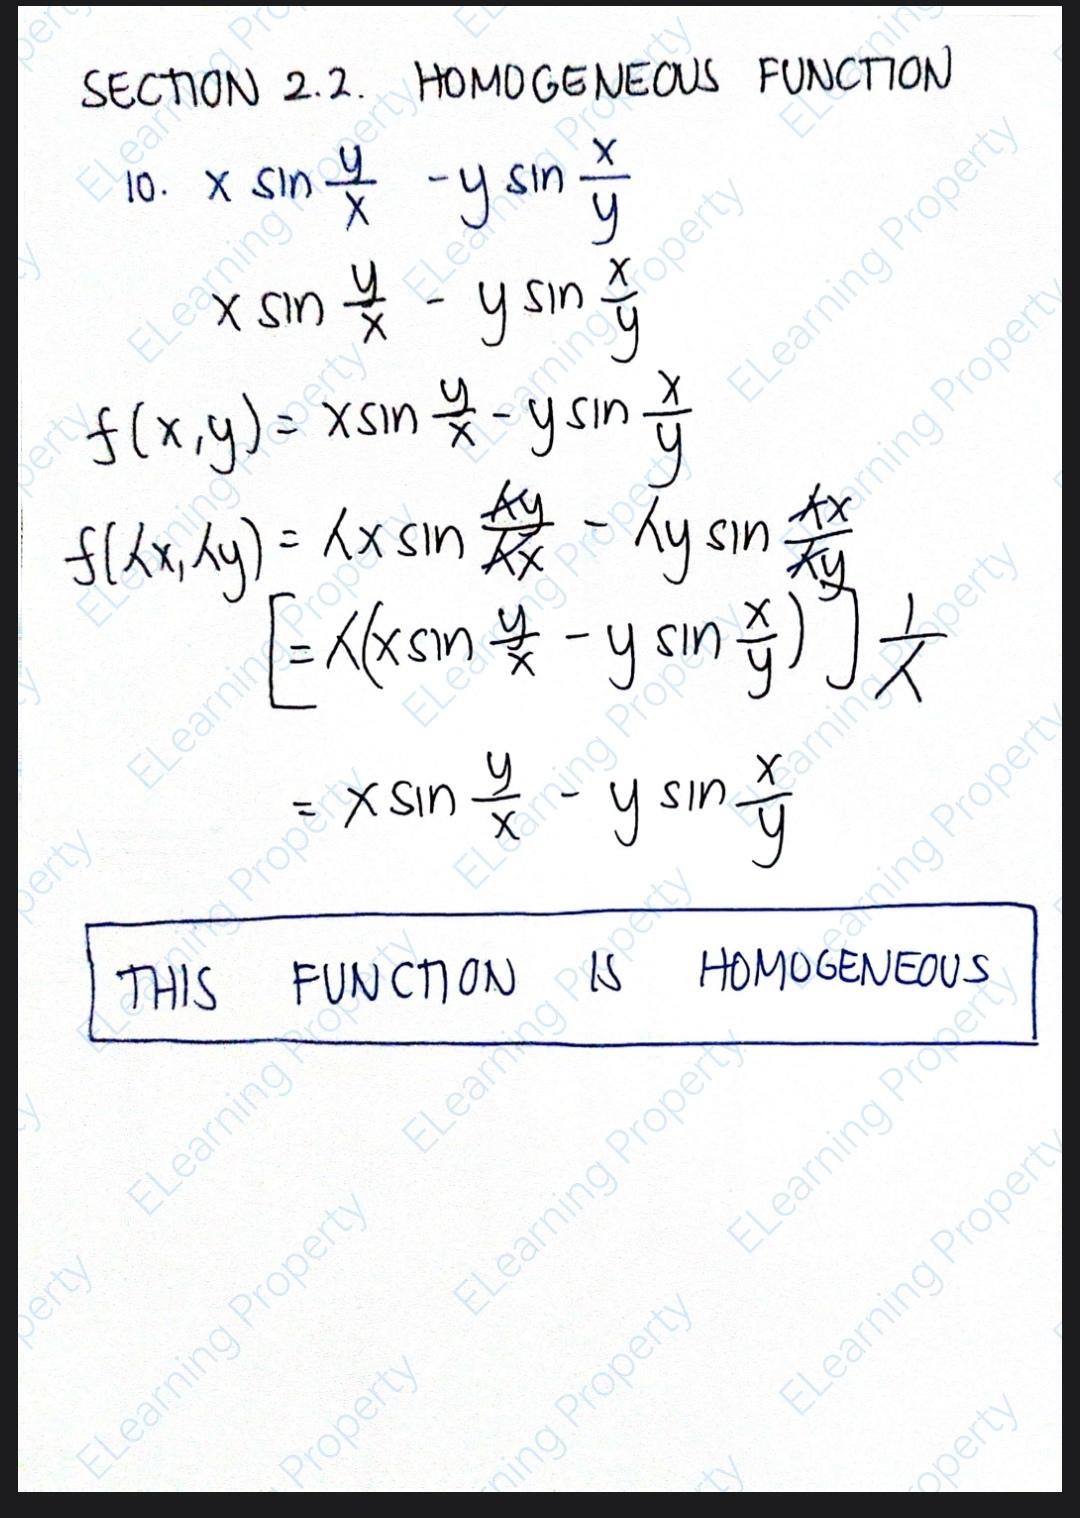 SECTION 2.2. HOMOGENEOUS FUNCTION
10. x sin y/x - y sin x/y
x sin y/x - y sin x/y
f(x,y) = x sin y/x - y sin x/y
f(λx,λy) = λx sin λy/λx - λy sin λx/λy
[= λ(x sin y/x - y sin x/y)] 1/λ
= x sin y/x - y sin x/y
THIS FUNCTION IS HOMOGENEOUS
ELearning Property